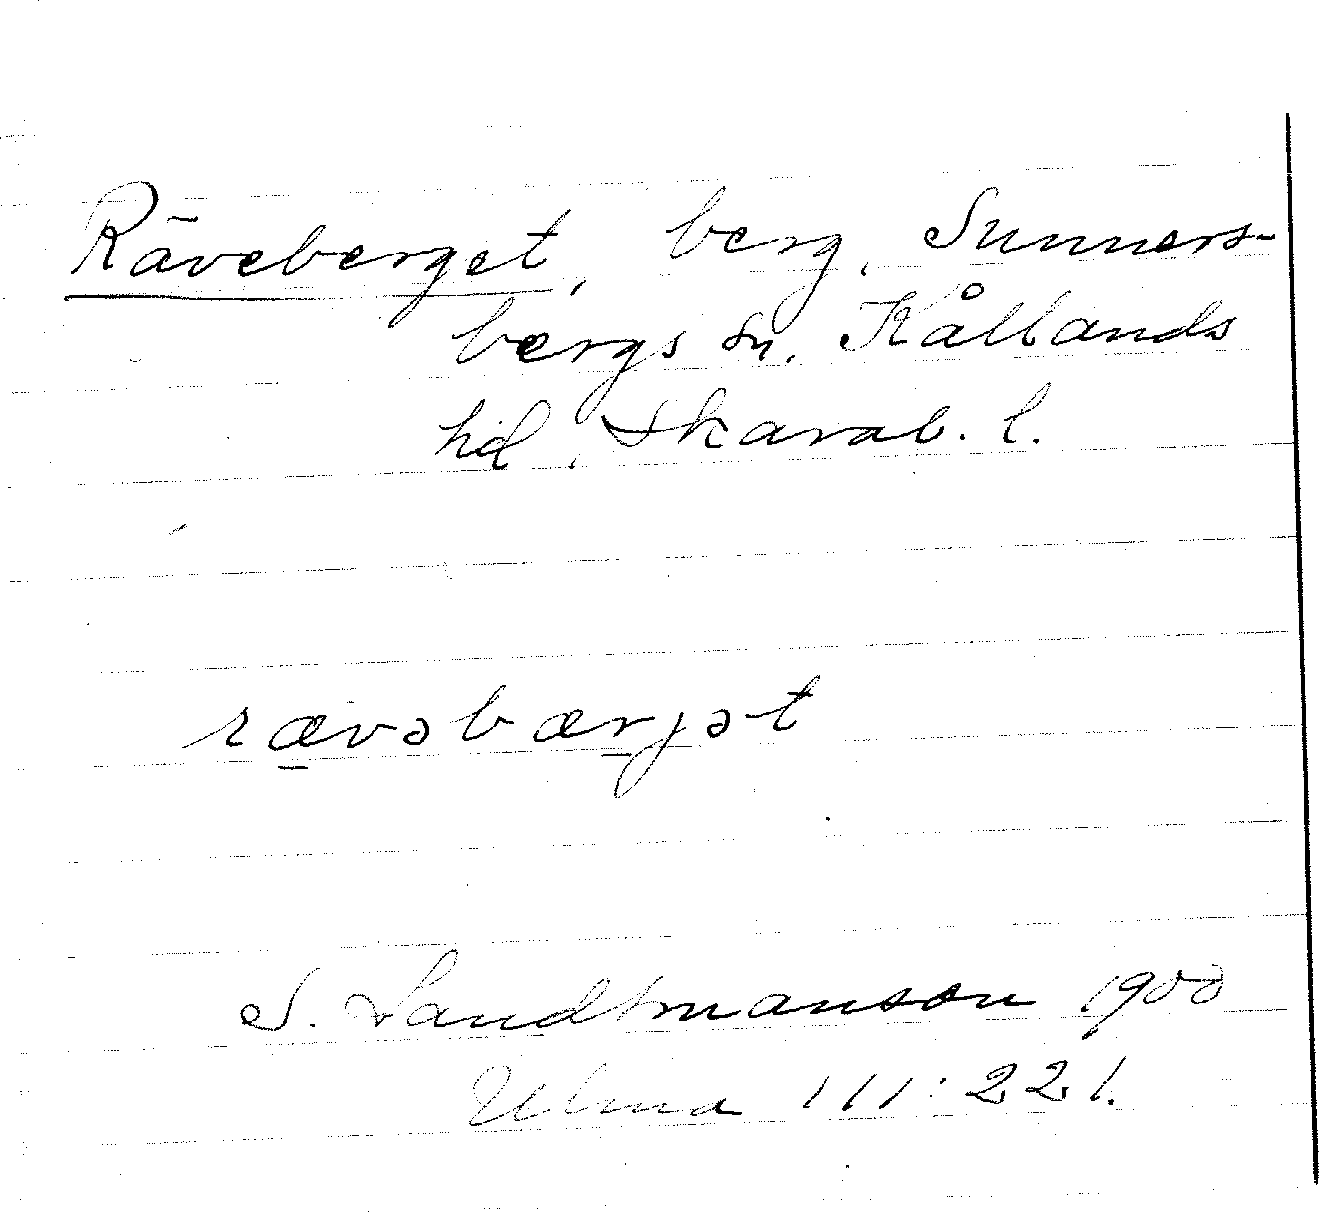 Räveberget, berg, Sunners-
bergs sn. Kållands
hd, Skarab. l.
rævəbærjət
S. Landtmanson 1900
Ulma 111:221.